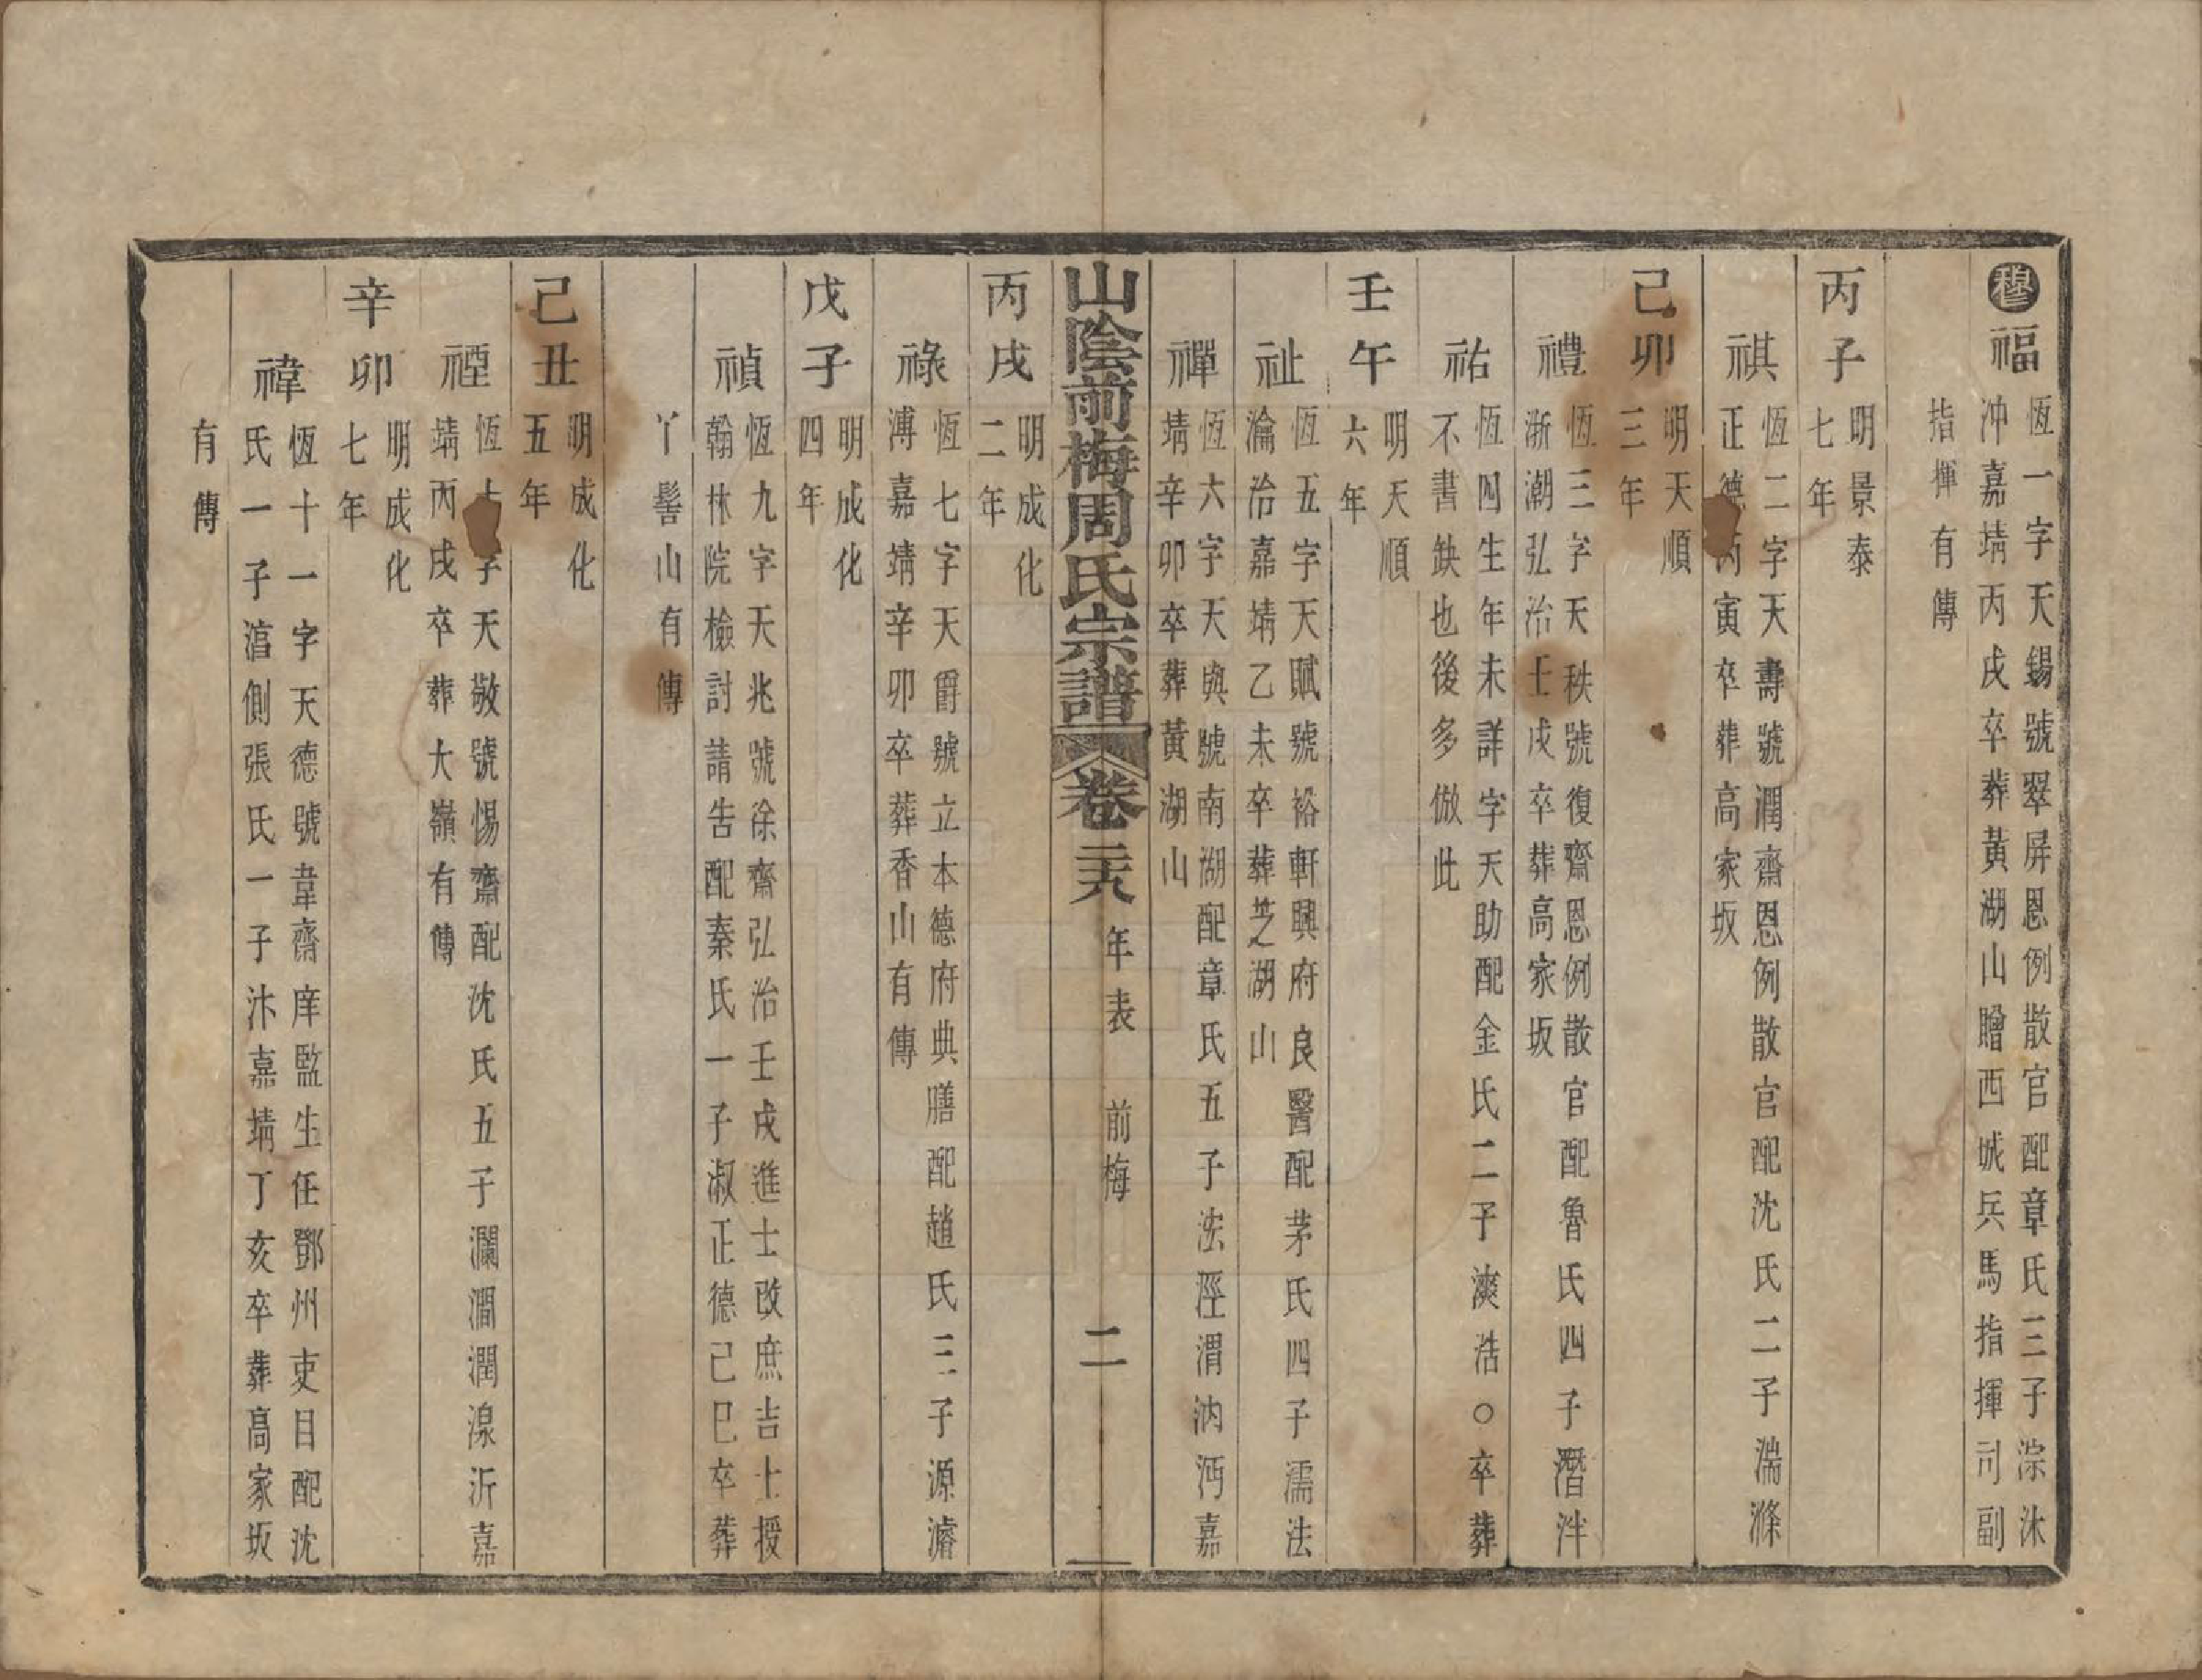 穆福
恆一字天錫號翠屏恩例散官配章氏三子淙沐
冲嘉靖丙戌卒葬黃湖山贈西城兵馬指揮司副
指揮有傳
丙子
明景泰
七年
祺
恆二字天壽號潤齋恩例散官配沈氏二子湍滌
正德丙寅卒葬高家坂
己卯
明天順
三年
禮
恆三字天秩號復齋恩例散官配魯氏四子潛泮
浙潮弘治壬戌卒葬高家坂
祐
恆四生年未詳字天助配金氏二子𣼳浩○卒葬
不書缺也後多倣此
壬午
明天順
六年
祉
恆五字天賦號裕軒興府良醫配茅氏四子濡法
瀹治嘉靖乙未卒葬芝湖山
禪
恆六字天與號南湖配章氏五子浤涇渭汭沔嘉
靖辛卯卒葬黃湖山
山陰前梅周氏宗譜
卷二十六 年表 前梅 二
丙戌
明成化
二年
祿
恆七字天爵號立本德府典膳配趙氏三子源濬
溥嘉靖辛卯卒葬香山有傳
戊子
明成化
四年
禎
恆九字天兆號徐齋弘治壬戌進士改庶吉士授
翰林院檢討請告配秦氏一子淑正德己巳卒葬
丫髻山有傳
己丑
明成化
五年
禋
恆十字天敬號惕齋配沈氏五子瀾澗潤湶沂嘉
靖丙戌卒葬大嶺有傳
辛卯
明成化
七年
禕
恆十一字天德號韋齋庠監生任鄧州吏目配沈
氏一子滀側張氏一子汴嘉靖丁亥卒葬高家坂
有傳